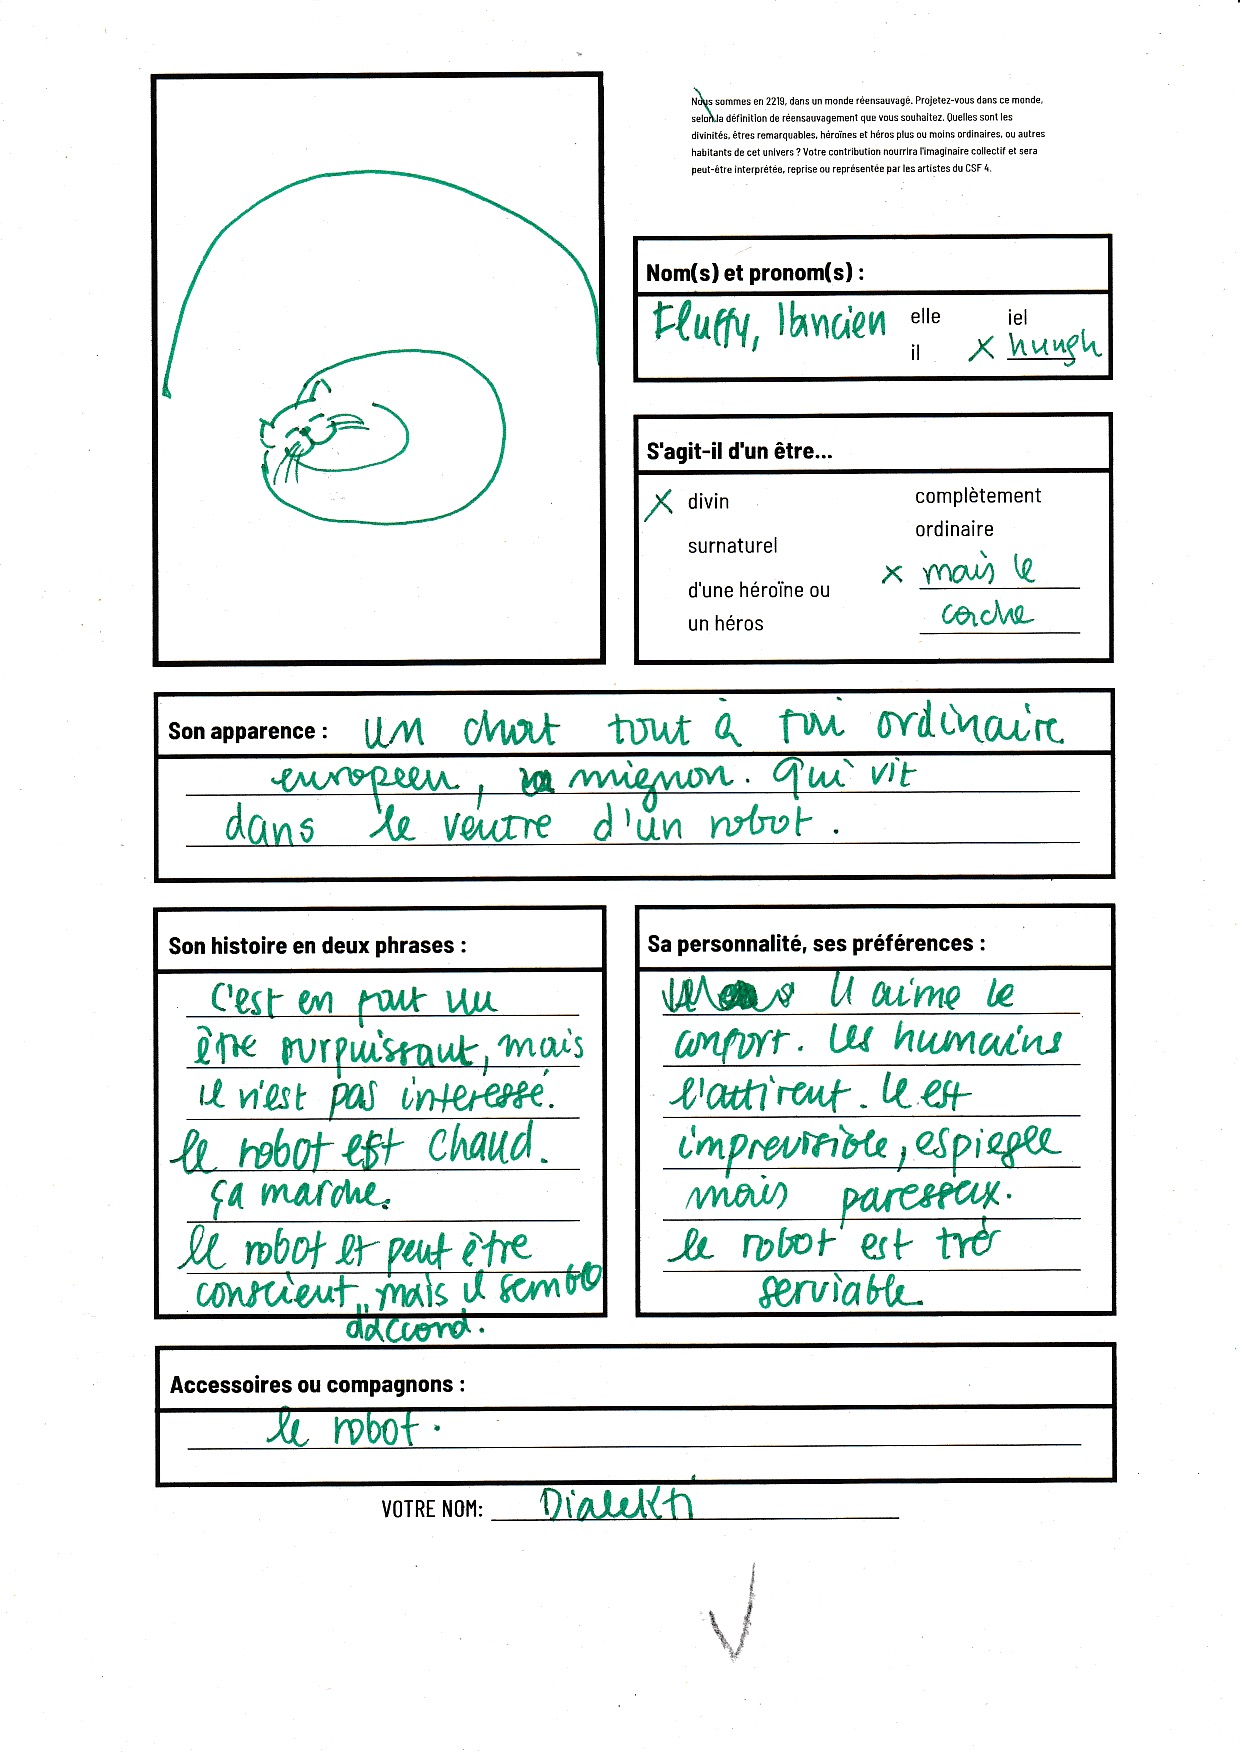 Nous sommes en 2219, dans un monde réensauvagé. Projetez-vous dans ce monde,
selon la définition de réensauvagement que vous souhaitez. Quelles sont les
divinités, êtres remarquables, héroïnes et héros plus ou moins ordinaires, ou autres
habitants de cet univers ? Votre contribution nourrira l'imaginaire collectif et sera
peut-être interprétée, reprise ou représentée par les artistes du CSF 4.
Nom(s) et pronom(s) :
Fluffy, l'ancien
elle
iel
il
X hungh
S'agit-il d'un être...
X divin
surnaturel
d'une héroïne ou
un héros
complètement
ordinaire
X mais le
cache
Son apparence : un chat tout à fai ordinaire
europeen, mignon. Qui vit
dans le ventre d'un robot.
Son histoire en deux phrases :
C'est en fait un
être surpuissant, mais
il n'est pas interessé.
le robot est chaud.
ça marche.
le robot et peut être
conscient, mais il semble
daccord.
Sa personnalité, ses préférences :
Il aime le
confort. Les humains
l'attirent. Il est
imprevisible, espiegle
mais paresseux.
le robot est très
serviable.
Accessoires ou compagnons :
le robot.
VOTRE NOM: Dialekti